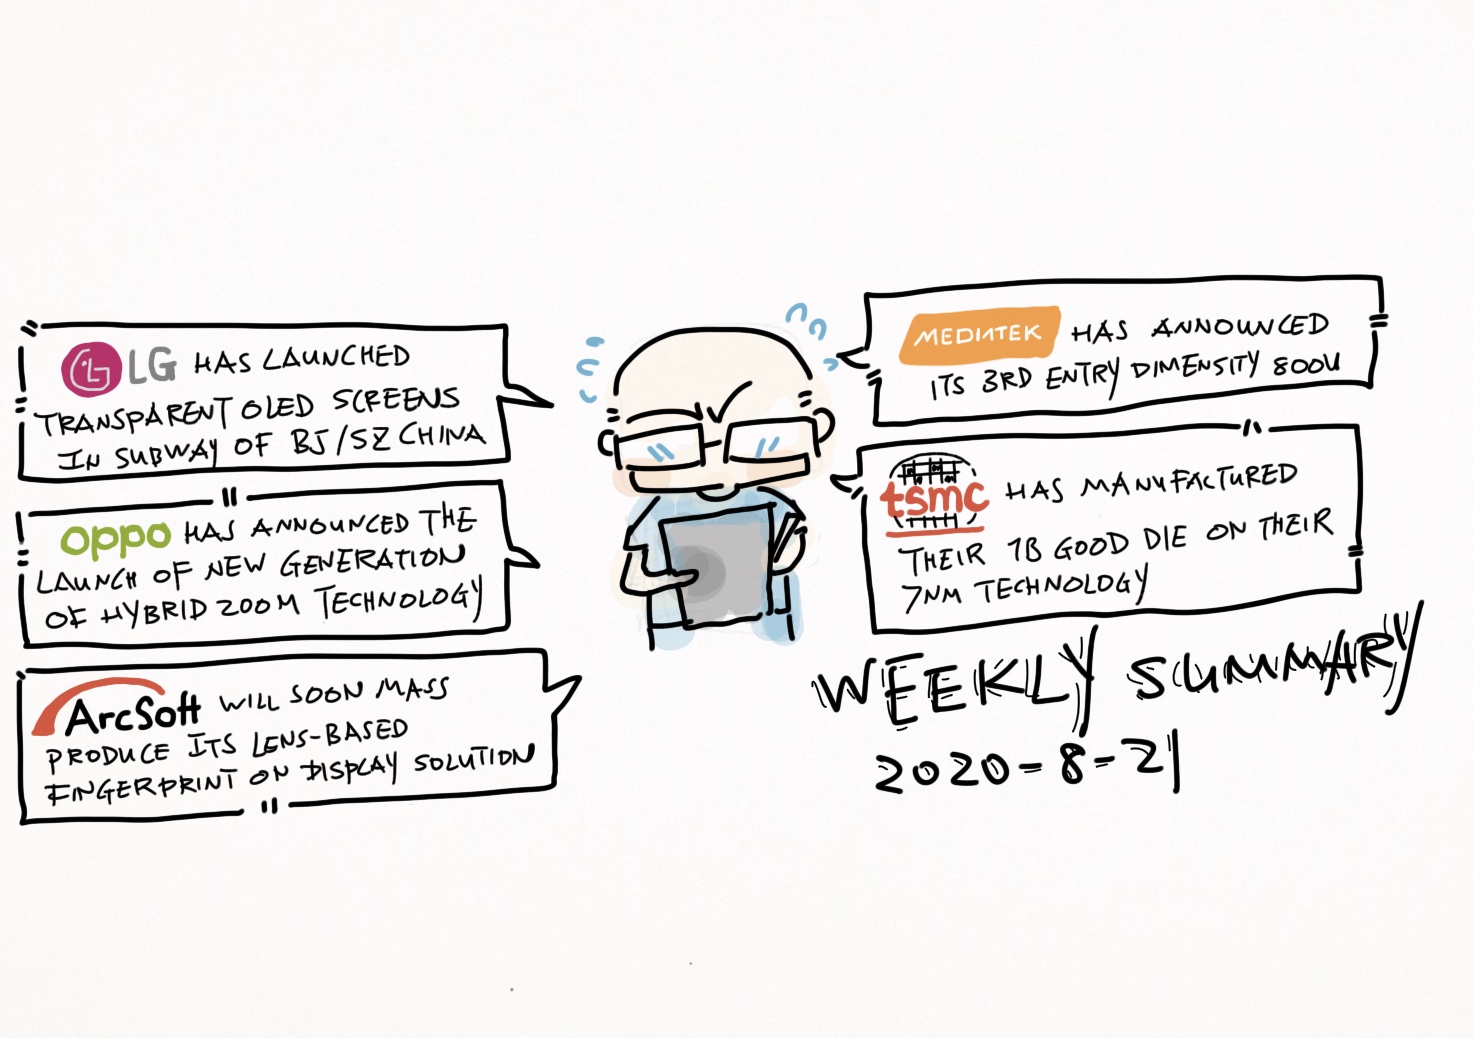 LG HAS LAUNCHED
TRANSPARENT OLED SCREENS
IN SUBWAY OF BJ/SZ CHINA
oppo HAS ANNOUNCED THE
LAUNCH OF NEW GENERATION
OF HYBRID ZOOM TECHNOLOGY
ArcSoft WILL SOON MASS
PRODUCE ITS LENS-BASED
FINGERPRINT ON DISPLAY SOLUTION
MEDIATEK HAS ANNOUNCED
ITS 3RD ENTRY DIMENSITY 800U
tsmc HAS MANUFACTURED
THEIR 1B GOOD DIE ON THEIR
7NM TECHNOLOGY
WEEKLY SUMMARY
2020-8-21